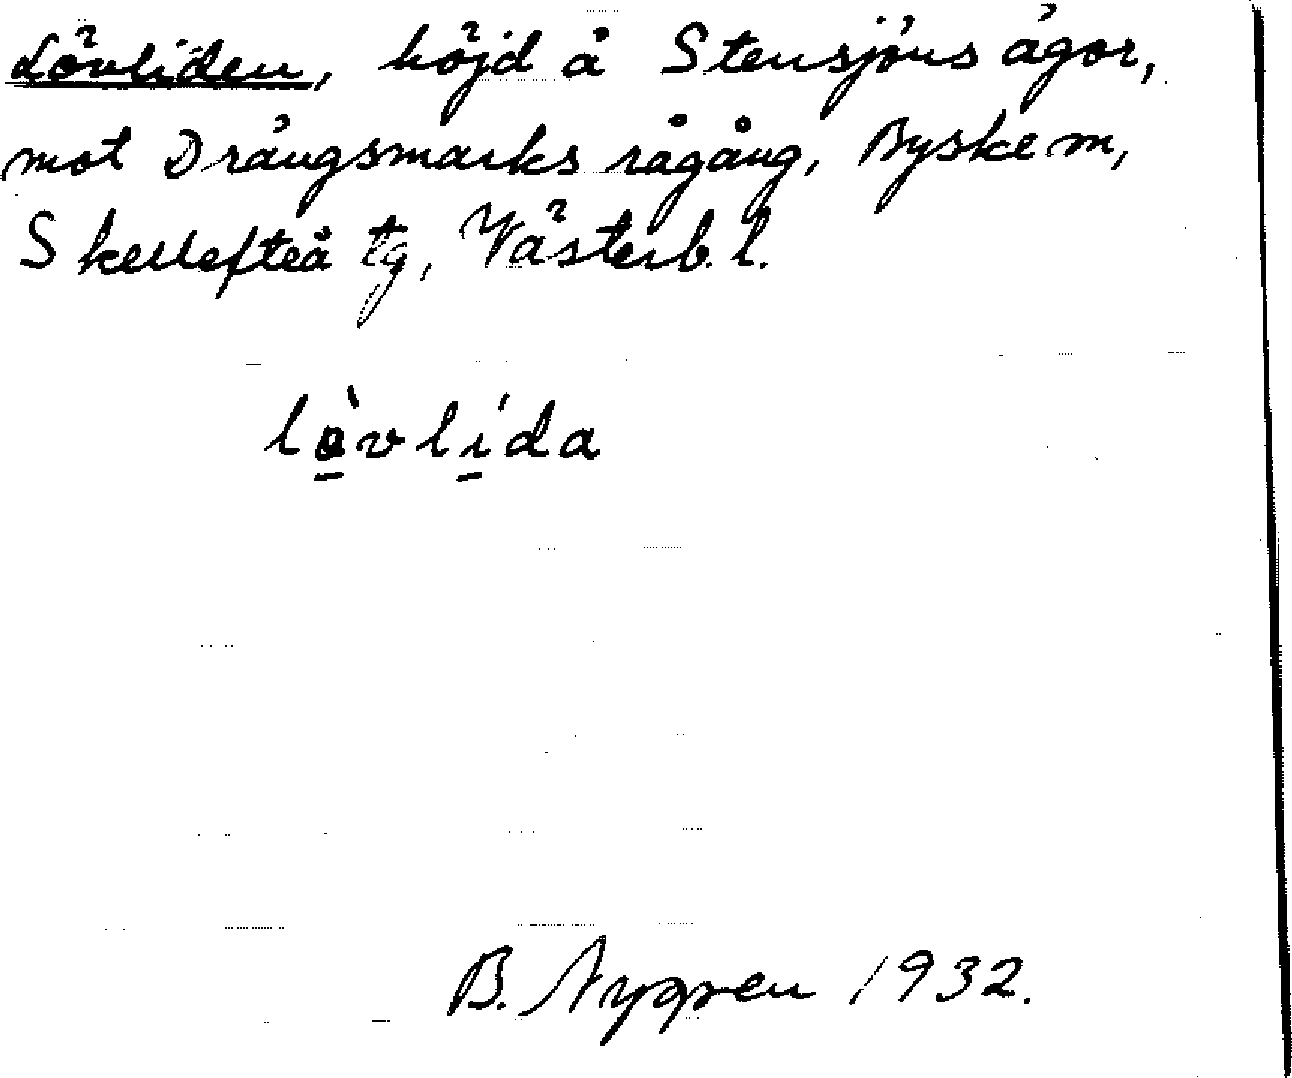 Lövliden, höjd å Stensjöns ägor,
mot Drängsmarks rågång, Byske sn,
Skellefteå tg, Västerb. l.
lò̲vlí̲da
B. Nygren 1932.